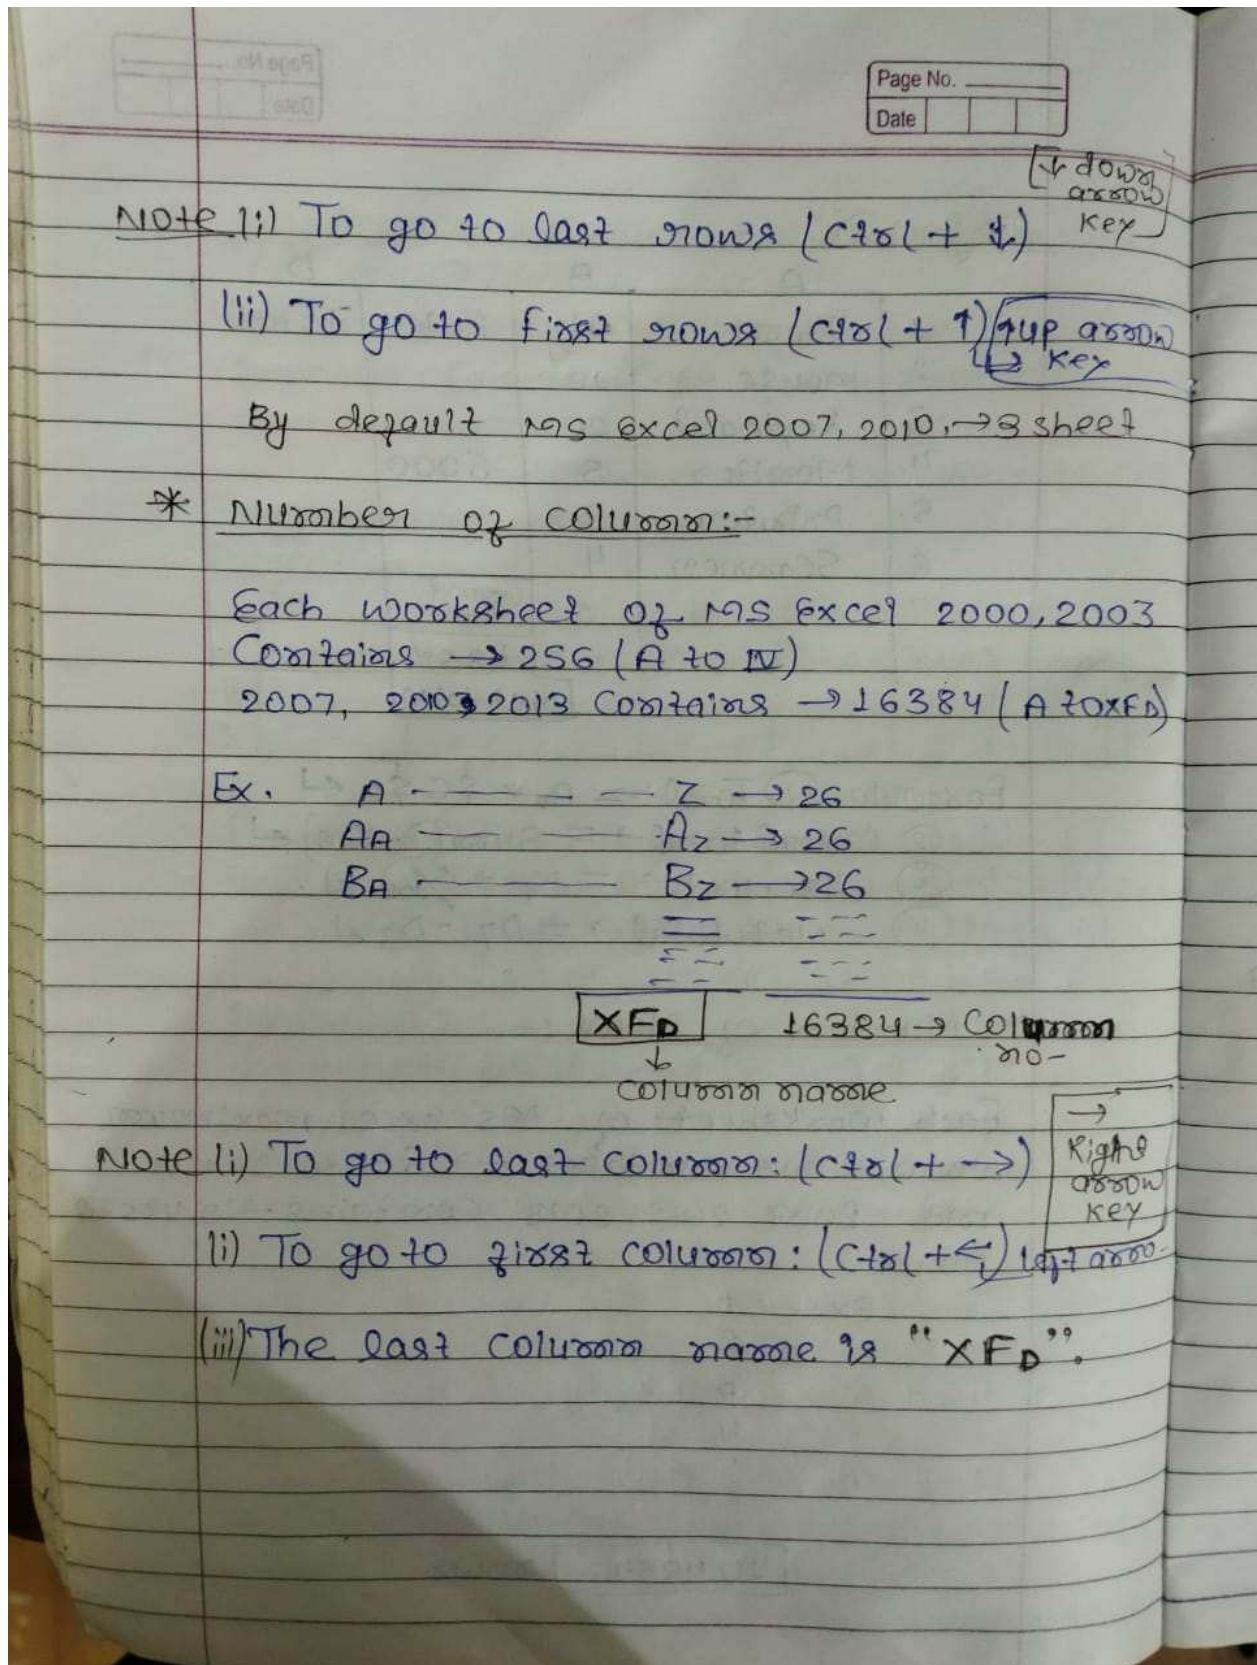 Page No.
Date
[↓ down
arrow
key]
Note (i) To go to last rows (Ctrl + ↓)
(ii) To go to first rows (Ctrl + ↑) [↑up arrow
↳ key
By default MS Excel 2007, 2010, → 3 sheet
* Number of column:-
Each worksheet of MS Excel 2000, 2003
Contains → 256 (A to IV)
2007, 2010, 2013 Contains → 16384 (A to XFD)
Ex. A - — - — Z → 26
AA — — AZ → 26
BA — — BZ → 26
XFD 16384 → Column
↓ no-
column name
→
Right
arrow
key
Note (i) To go to last column: (Ctrl + →)
(ii) To go to first column: (Ctrl + ←) left arro-
(iii) The last column name is "XFD".